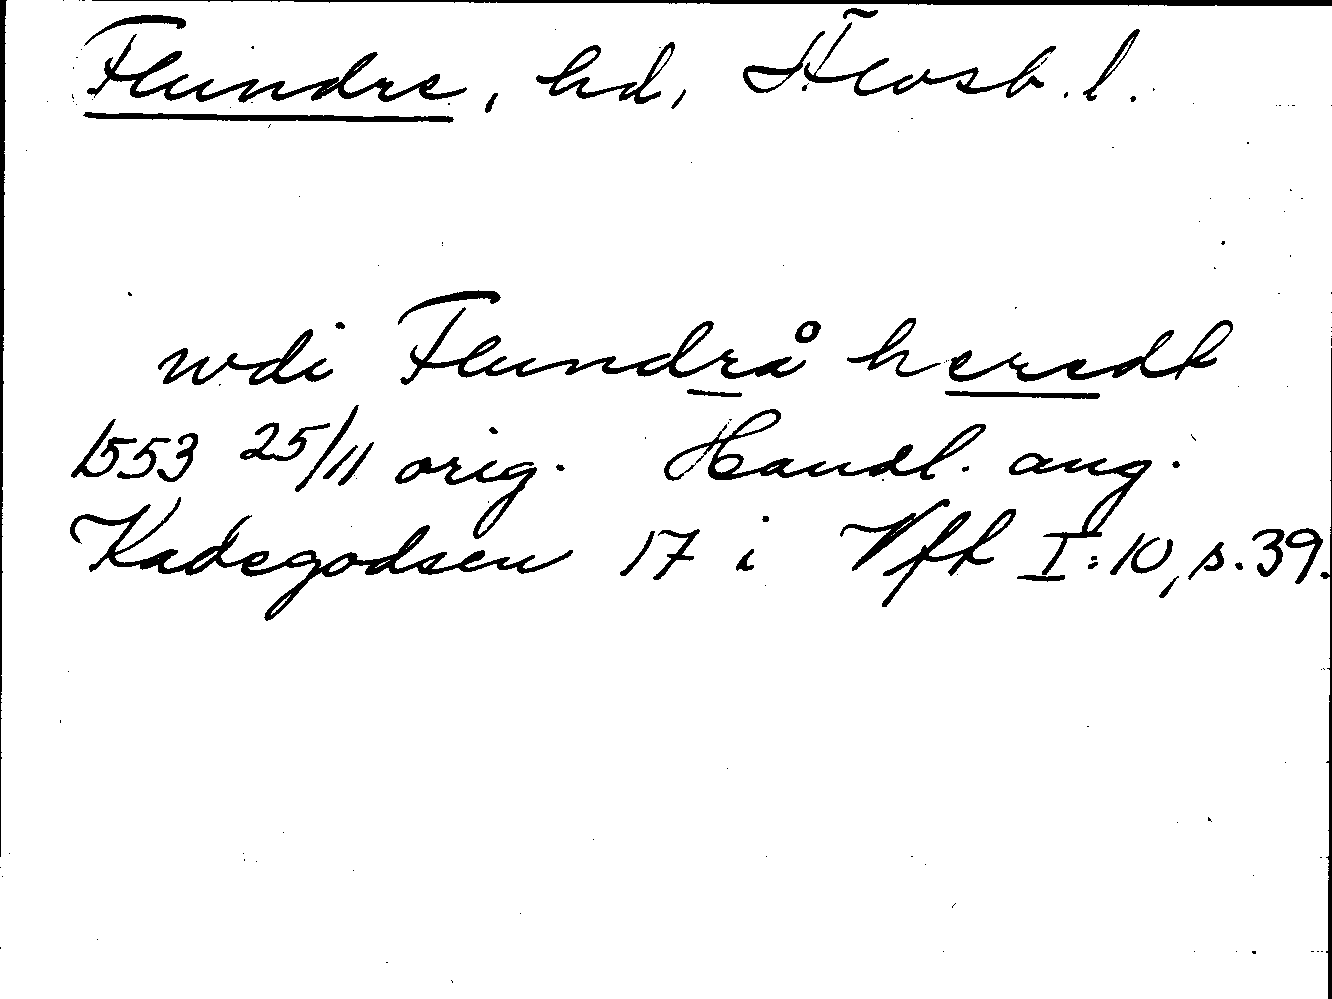 Flundre, hd, Älvsb. l.
wdi Flundrå heredt
1553 25/11 orig. Handl. ang.
Kadegodsen 17 i Vft I:10, s. 39.